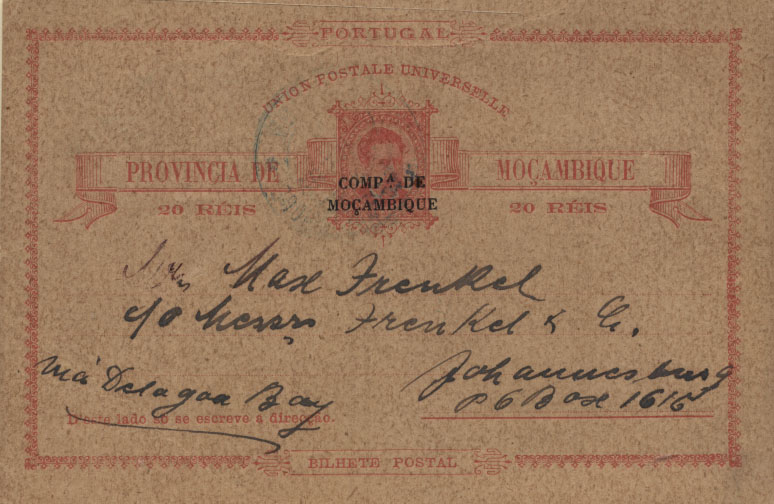 PORTUGAL
UNION POSTALE UNIVERSELLE
PROVINCIA DE MOÇAMBIQUE
20 RÉIS 20 RÉIS
COMPᴬ DE
MOÇAMBIQUE
Max Frenkel
c/o Messrs Frenkel & Co.
Johannesburg
P O Box 1615
via Delagoa Bay
D'este lado só se escreve a direcção.
BILHETE POSTAL